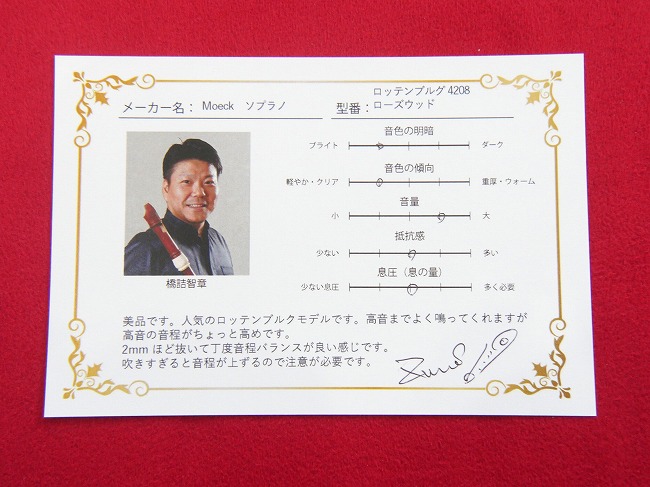 メーカー名： Moeck ソプラノ
型番： ロッテンブルグ 4208
ローズウッド
音色の明暗
ブライト ダーク
音色の傾向
軽やか・クリア 重厚・ウォーム
音量
小 大
抵抗感
少ない 多い
息圧（息の量）
少ない息圧 多く必要
橋詰智章
美品です。人気のロッテンブルクモデルです。高音までよく鳴ってくれますが
高音の音程がちょっと高めです。
2mm ほど抜いて丁度音程バランスが良い感じです。
吹きすぎると音程が上ずるので注意が必要です。